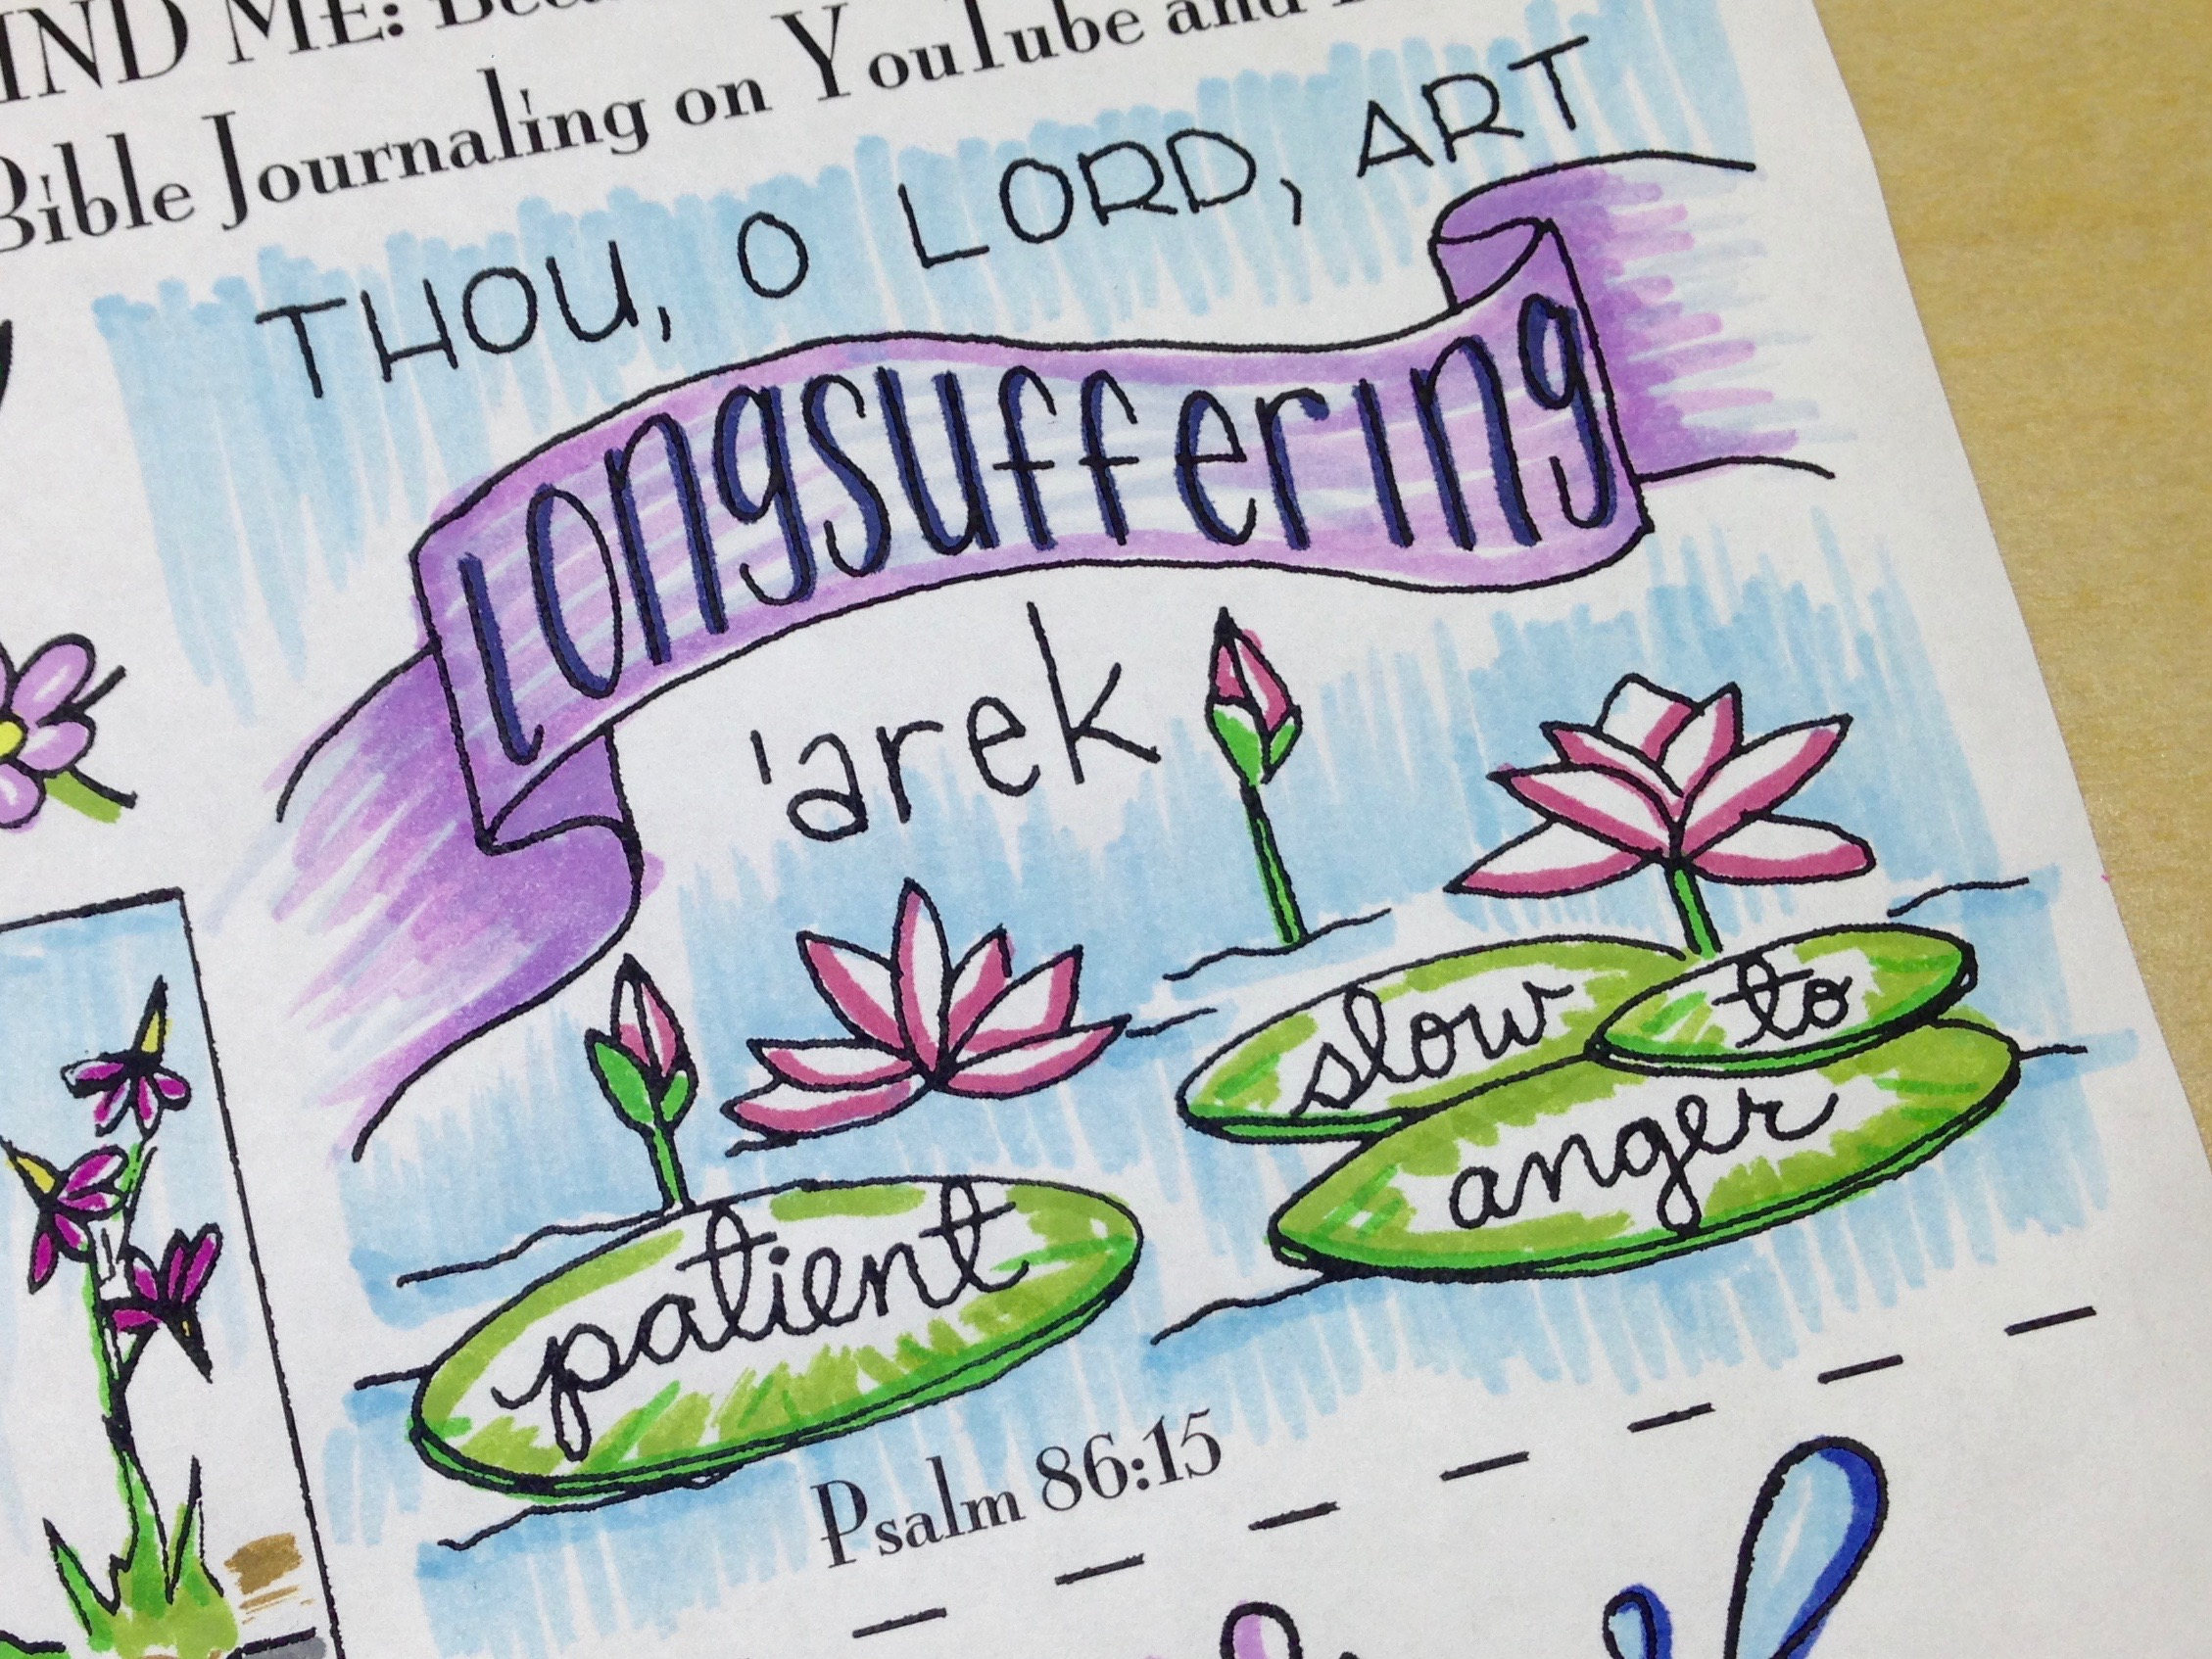 ME:
Bible Journaling on YouTube and
THOU, O LORD, ART
longsuffering
'arek
slow to
anger
patient
Psalm 86:15